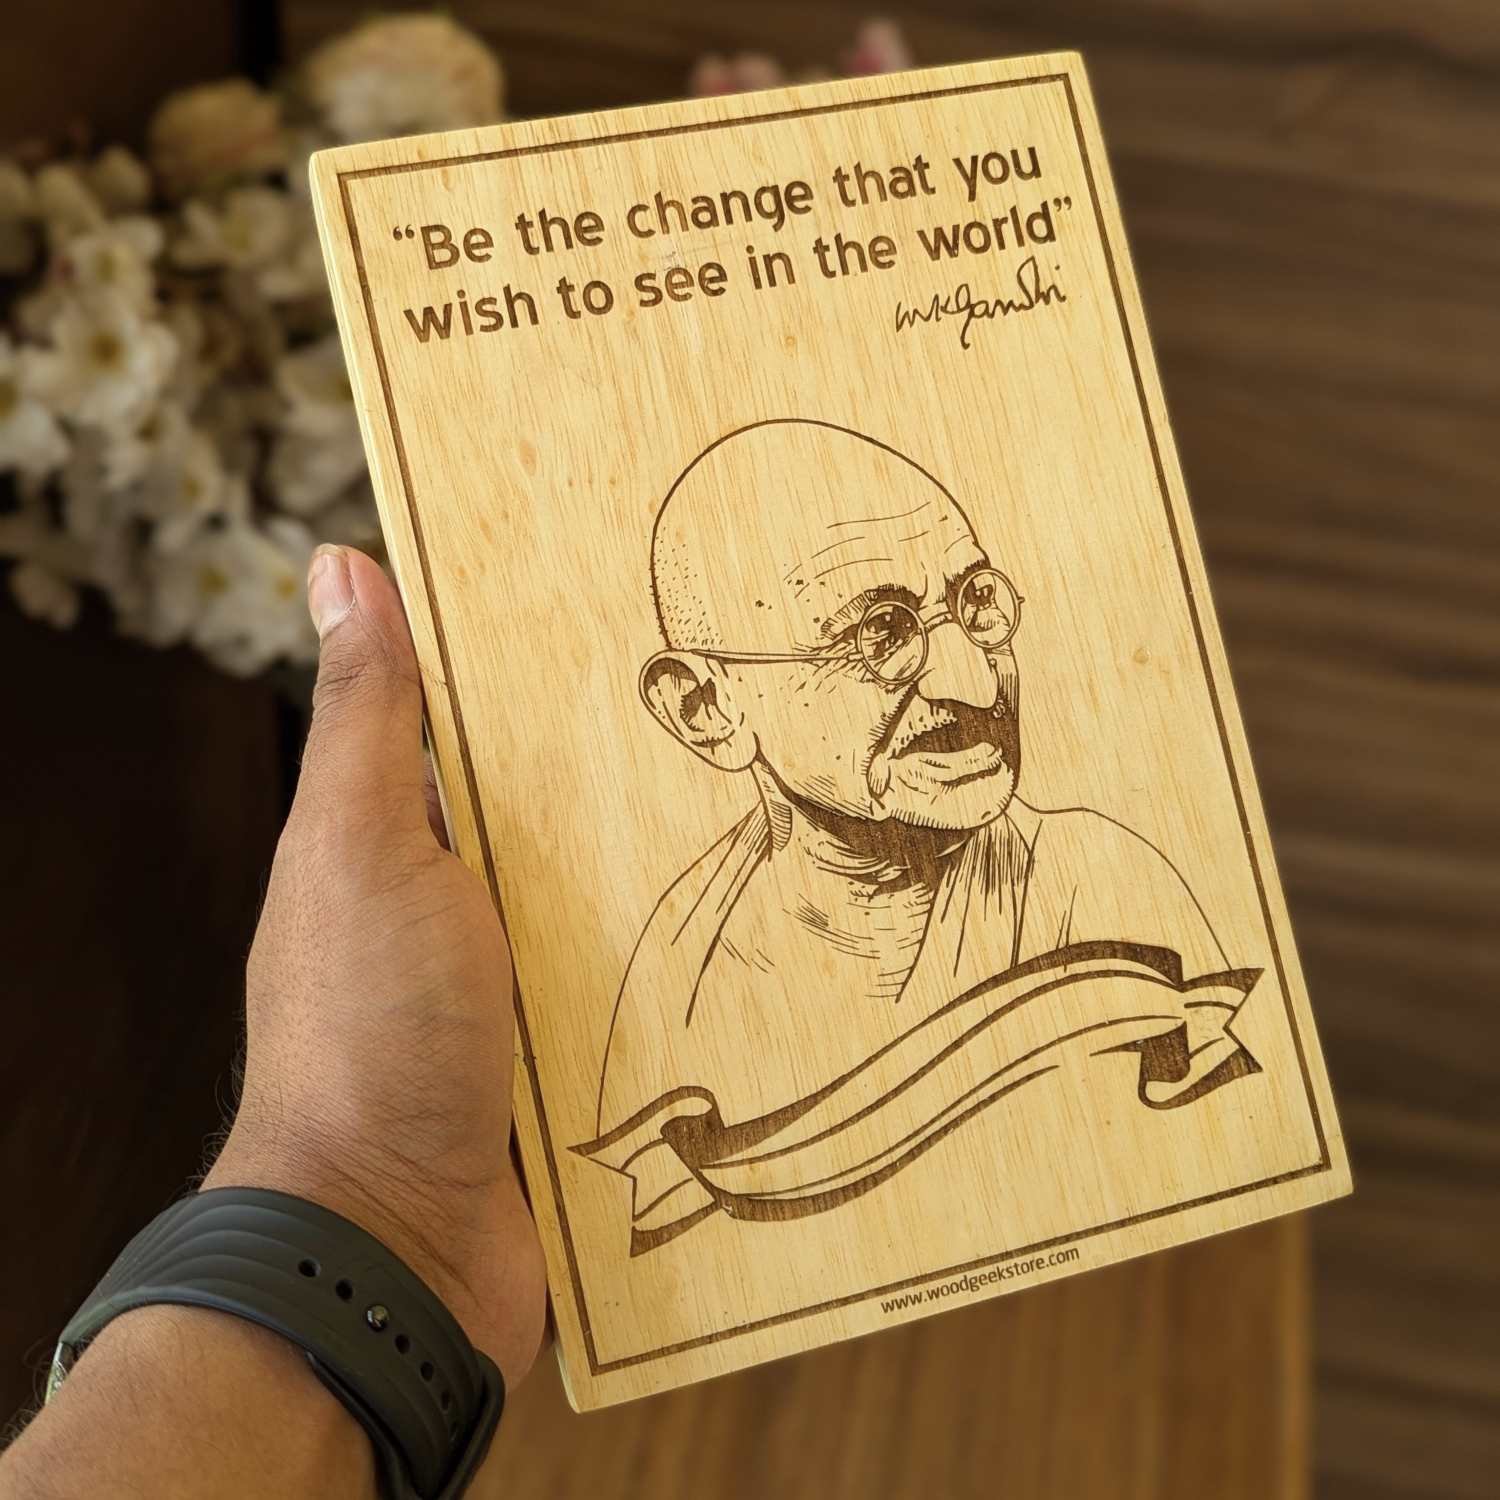 “Be the change that you
wish to see in the world”
mkgandhi
www.woodgeekstore.com